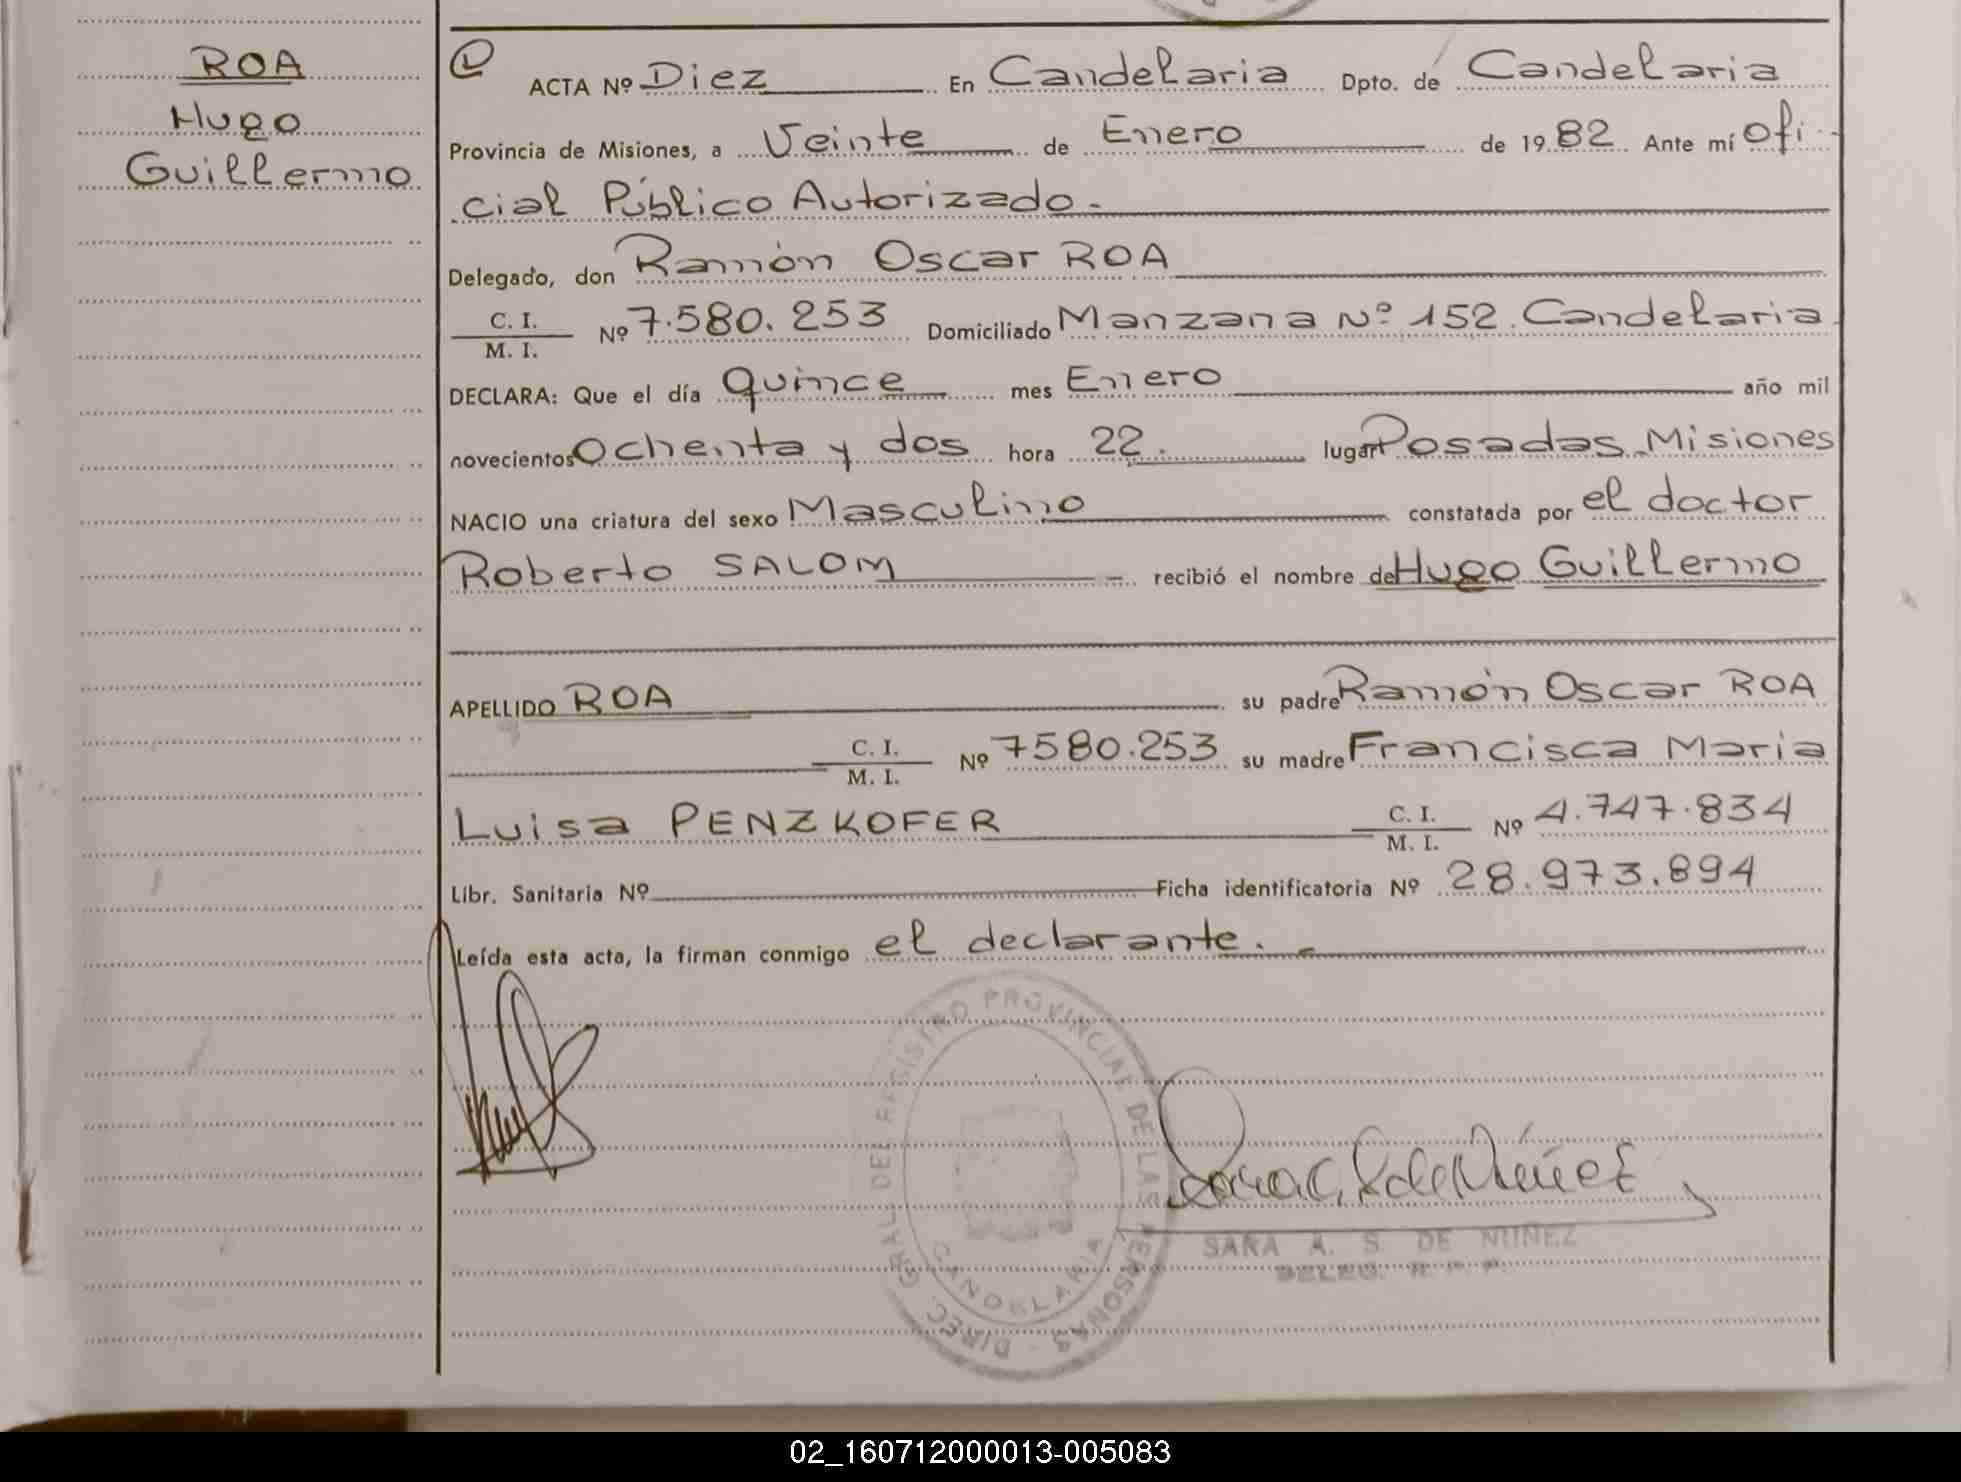 ROA
Hugo
Guillermo
ACTA Nº Diez En Candelaria Dpto. de Candelaria
Provincia de Misiones, a Veinte de Enero de 1982 Ante mí Ofi-
cial Público Autorizado.-
Delegado, don Ramón Oscar ROA
C. I.
M. I. Nº 7.580.253 Domiciliado Manzana Nº 152. Candelaria.
DECLARA: Que el día quince mes Enero año mil
novecientos Ochenta y dos hora 22. lugar Posadas Misiones
NACIO una criatura del sexo Masculino constatada por el doctor
Roberto SALOM - recibió el nombre de Hugo Guillermo
APELLIDO ROA su padre Ramón Oscar ROA
C. I.
M. I. Nº 7580.253 su madre Francisca Maria
Luisa PENZKOFER C. I.
M. I. Nº 4.747.834
Libr. Sanitaria Nº Ficha identificatoria Nº 28.973.894
Leída esta acta, la firman conmigo el declarante.
DIREC. GRAL. DEL REGISTRO PROVINCIAL DE LAS PERSONAS -
CANDELARIA
SARA A. S. DE NUÑEZ
DELEG. R. P. P.
02_160712000013-005083